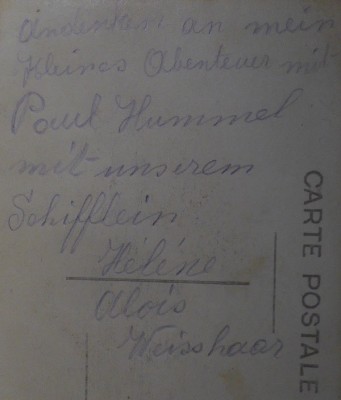 Andenken an mein
kleines Abenteuer mit
Paul Hummel
mit unserem
Schifflein
Hélène
Alois
Weisshaar
CARTE POSTALE